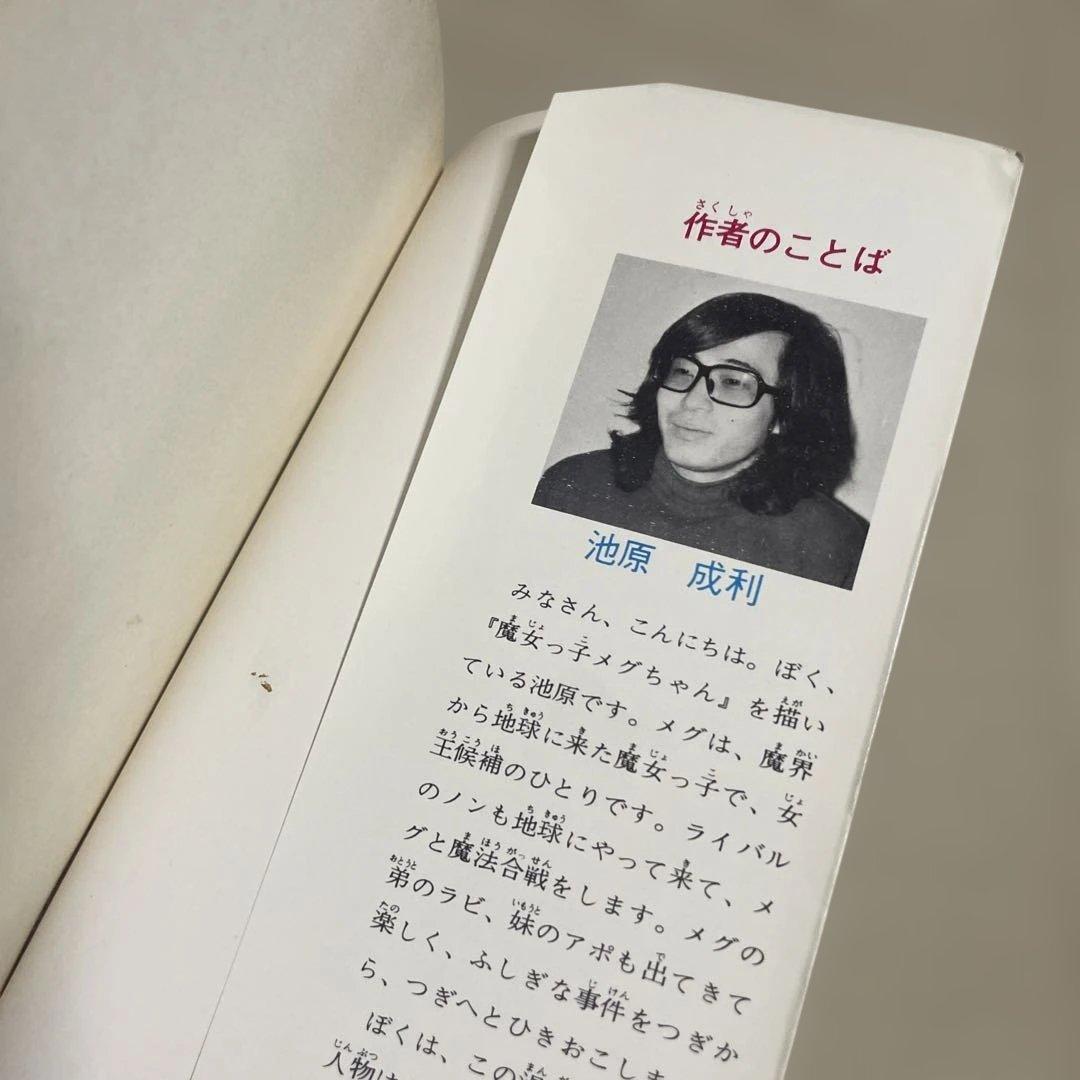 作者のことば
池原 成利
みなさん、こんにちは。ぼく、
『魔女っ子メグちゃん』を描い
ている池原です。メグは、魔界
から地球に来た魔女っ子で、女
王候補のひとりです。ライバル
のノンも地球にやって来て、メ
グと魔法合戦をします。メグの
弟のラビ、妹のアポも出てきて
楽しく、ふしぎな事件をつぎか
ら、つぎへとひきおこしま
ぼくは、この
人物は